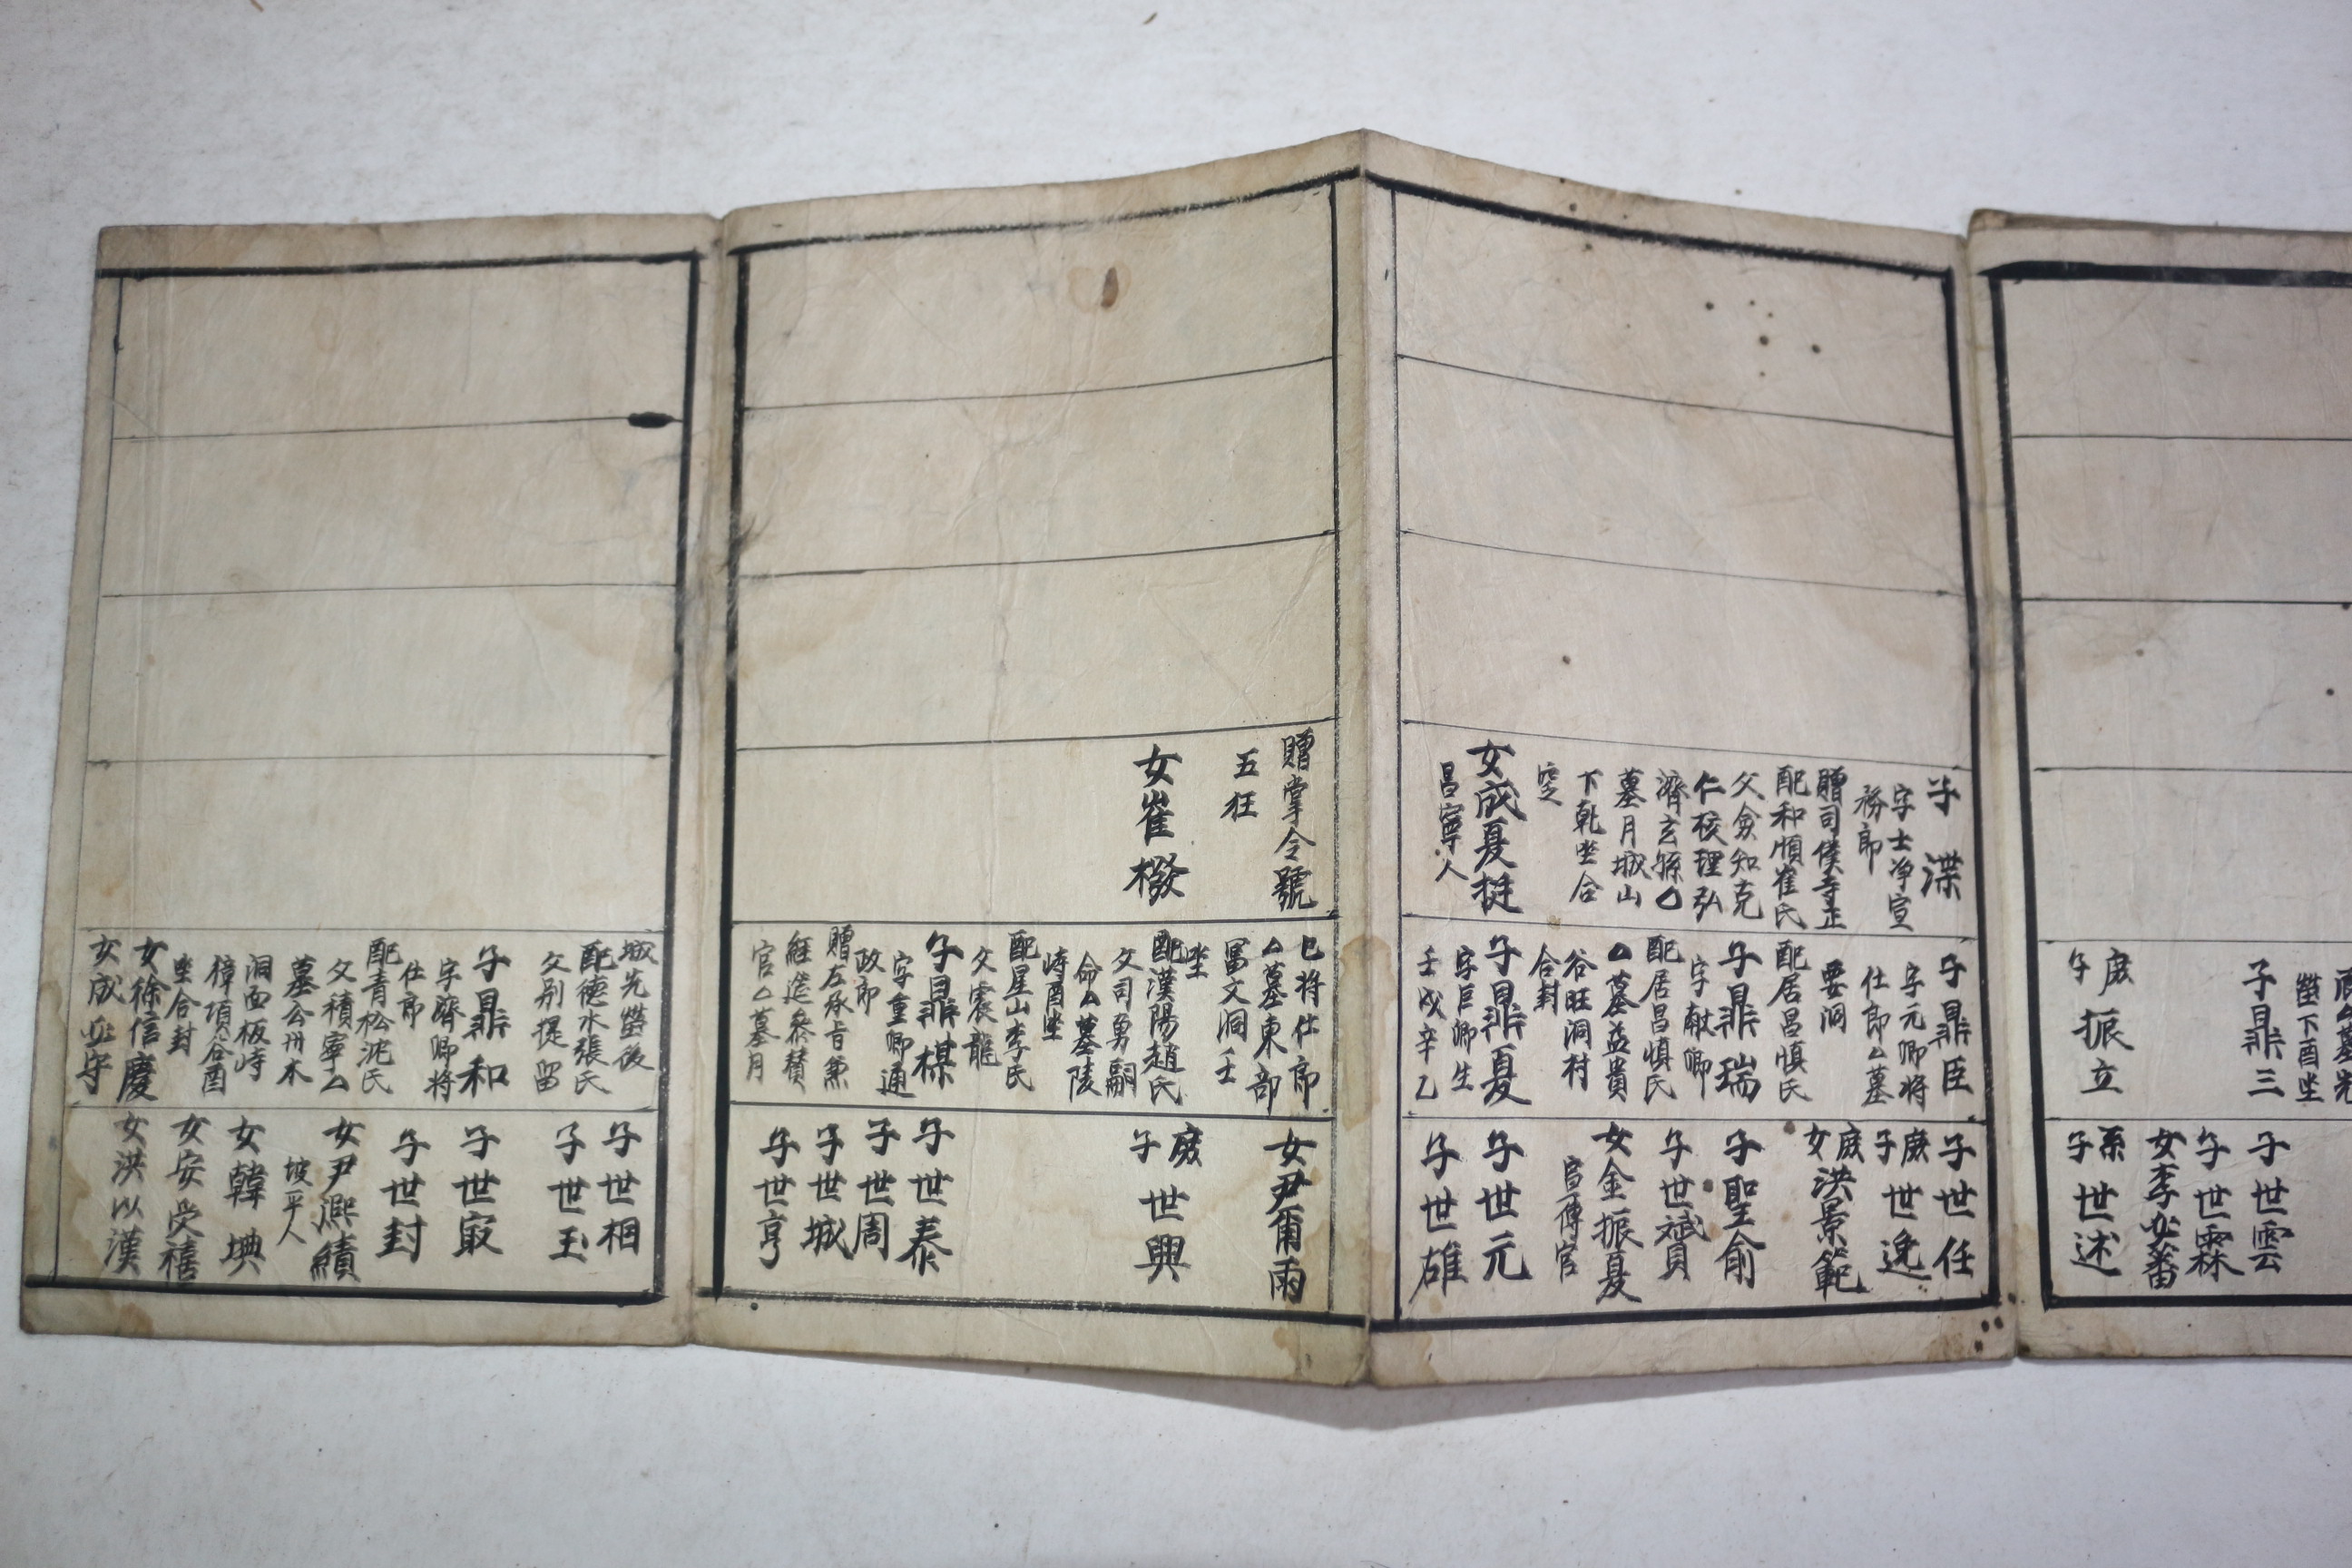 廟△墓先
塋下酉坐
子鼎三
庶子振立
子世雲
子世霖
女李必蕃
系子世述
子渫
字士净宣
務郎
贈司僕寺正
配和順崔氏
父僉知克
仁校理弘
濟玄孫△
墓月城山
下乾坐合
窆
女成夏挺
昌寧人
子鼎臣
字元卿將
仕郎△墓
要洞
配居昌愼氏
子鼎瑞
字献卿
配居昌愼氏
△墓益貴
谷旺洞村
合封
子鼎夏
字巨卿生
壬戌辛乙
子世任
庶子世逸
庶女洪景範
子聖俞
子世斌
女金振夏
宣傳官
子世元
子世雄
贈掌令號
五狂
女崔橃
巳將仕郎
△墓東部
冨文洞壬
坐
配漢陽趙氏
父司勇嗣
命△墓陵
峙酉坐
配星山李氏
父震龍
子鼎楳
字重卿通
政郎
贈左承旨兼
經筵參賛
官△墓月
女尹甬雨
庶子世興
子世泰
子世周
子世城
子世亨
城先塋後
配德水張氏
父別提留
子鼎和
字濟卿將
仕郎
配青松沈氏
父積寧△
墓公州木
洞面板峙
獐項谷酉
坐合封
女徐信慶
女成必守
子世相
子世玉
子世㝡
子世封
女尹熈績
坡平人
女韓㙉
女安受禧
女洪以漢